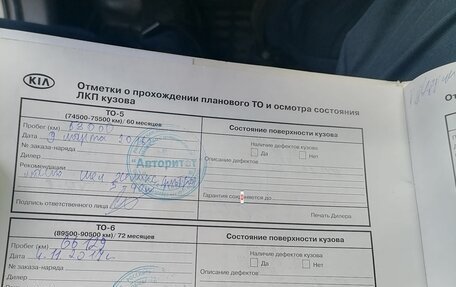 KIA
Отметки о прохождении планового ТО и осмотра состояния
ЛКП кузова
ТО-5
(74500-75500 км)/ 60 месяцев
Состояние поверхности кузова
Пробег (км)
Дата 9 марта
№ заказа-наряда
Дилер
Рекомендации
"Авторитет"
Подпись ответственного лица
Наличие дефектов кузова
Да Нет
Описание дефектов
Гарантия сохраняется до
Печать Дилера
ТО-6
(89500-90500 км)/ 72 месяцев
Состояние поверхности кузова
Пробег (км) 66129
Дата 4.11.2019г.
№ заказа-наряда
Дилер
Наличие дефектов кузова
Да Нет
Описание дефектов